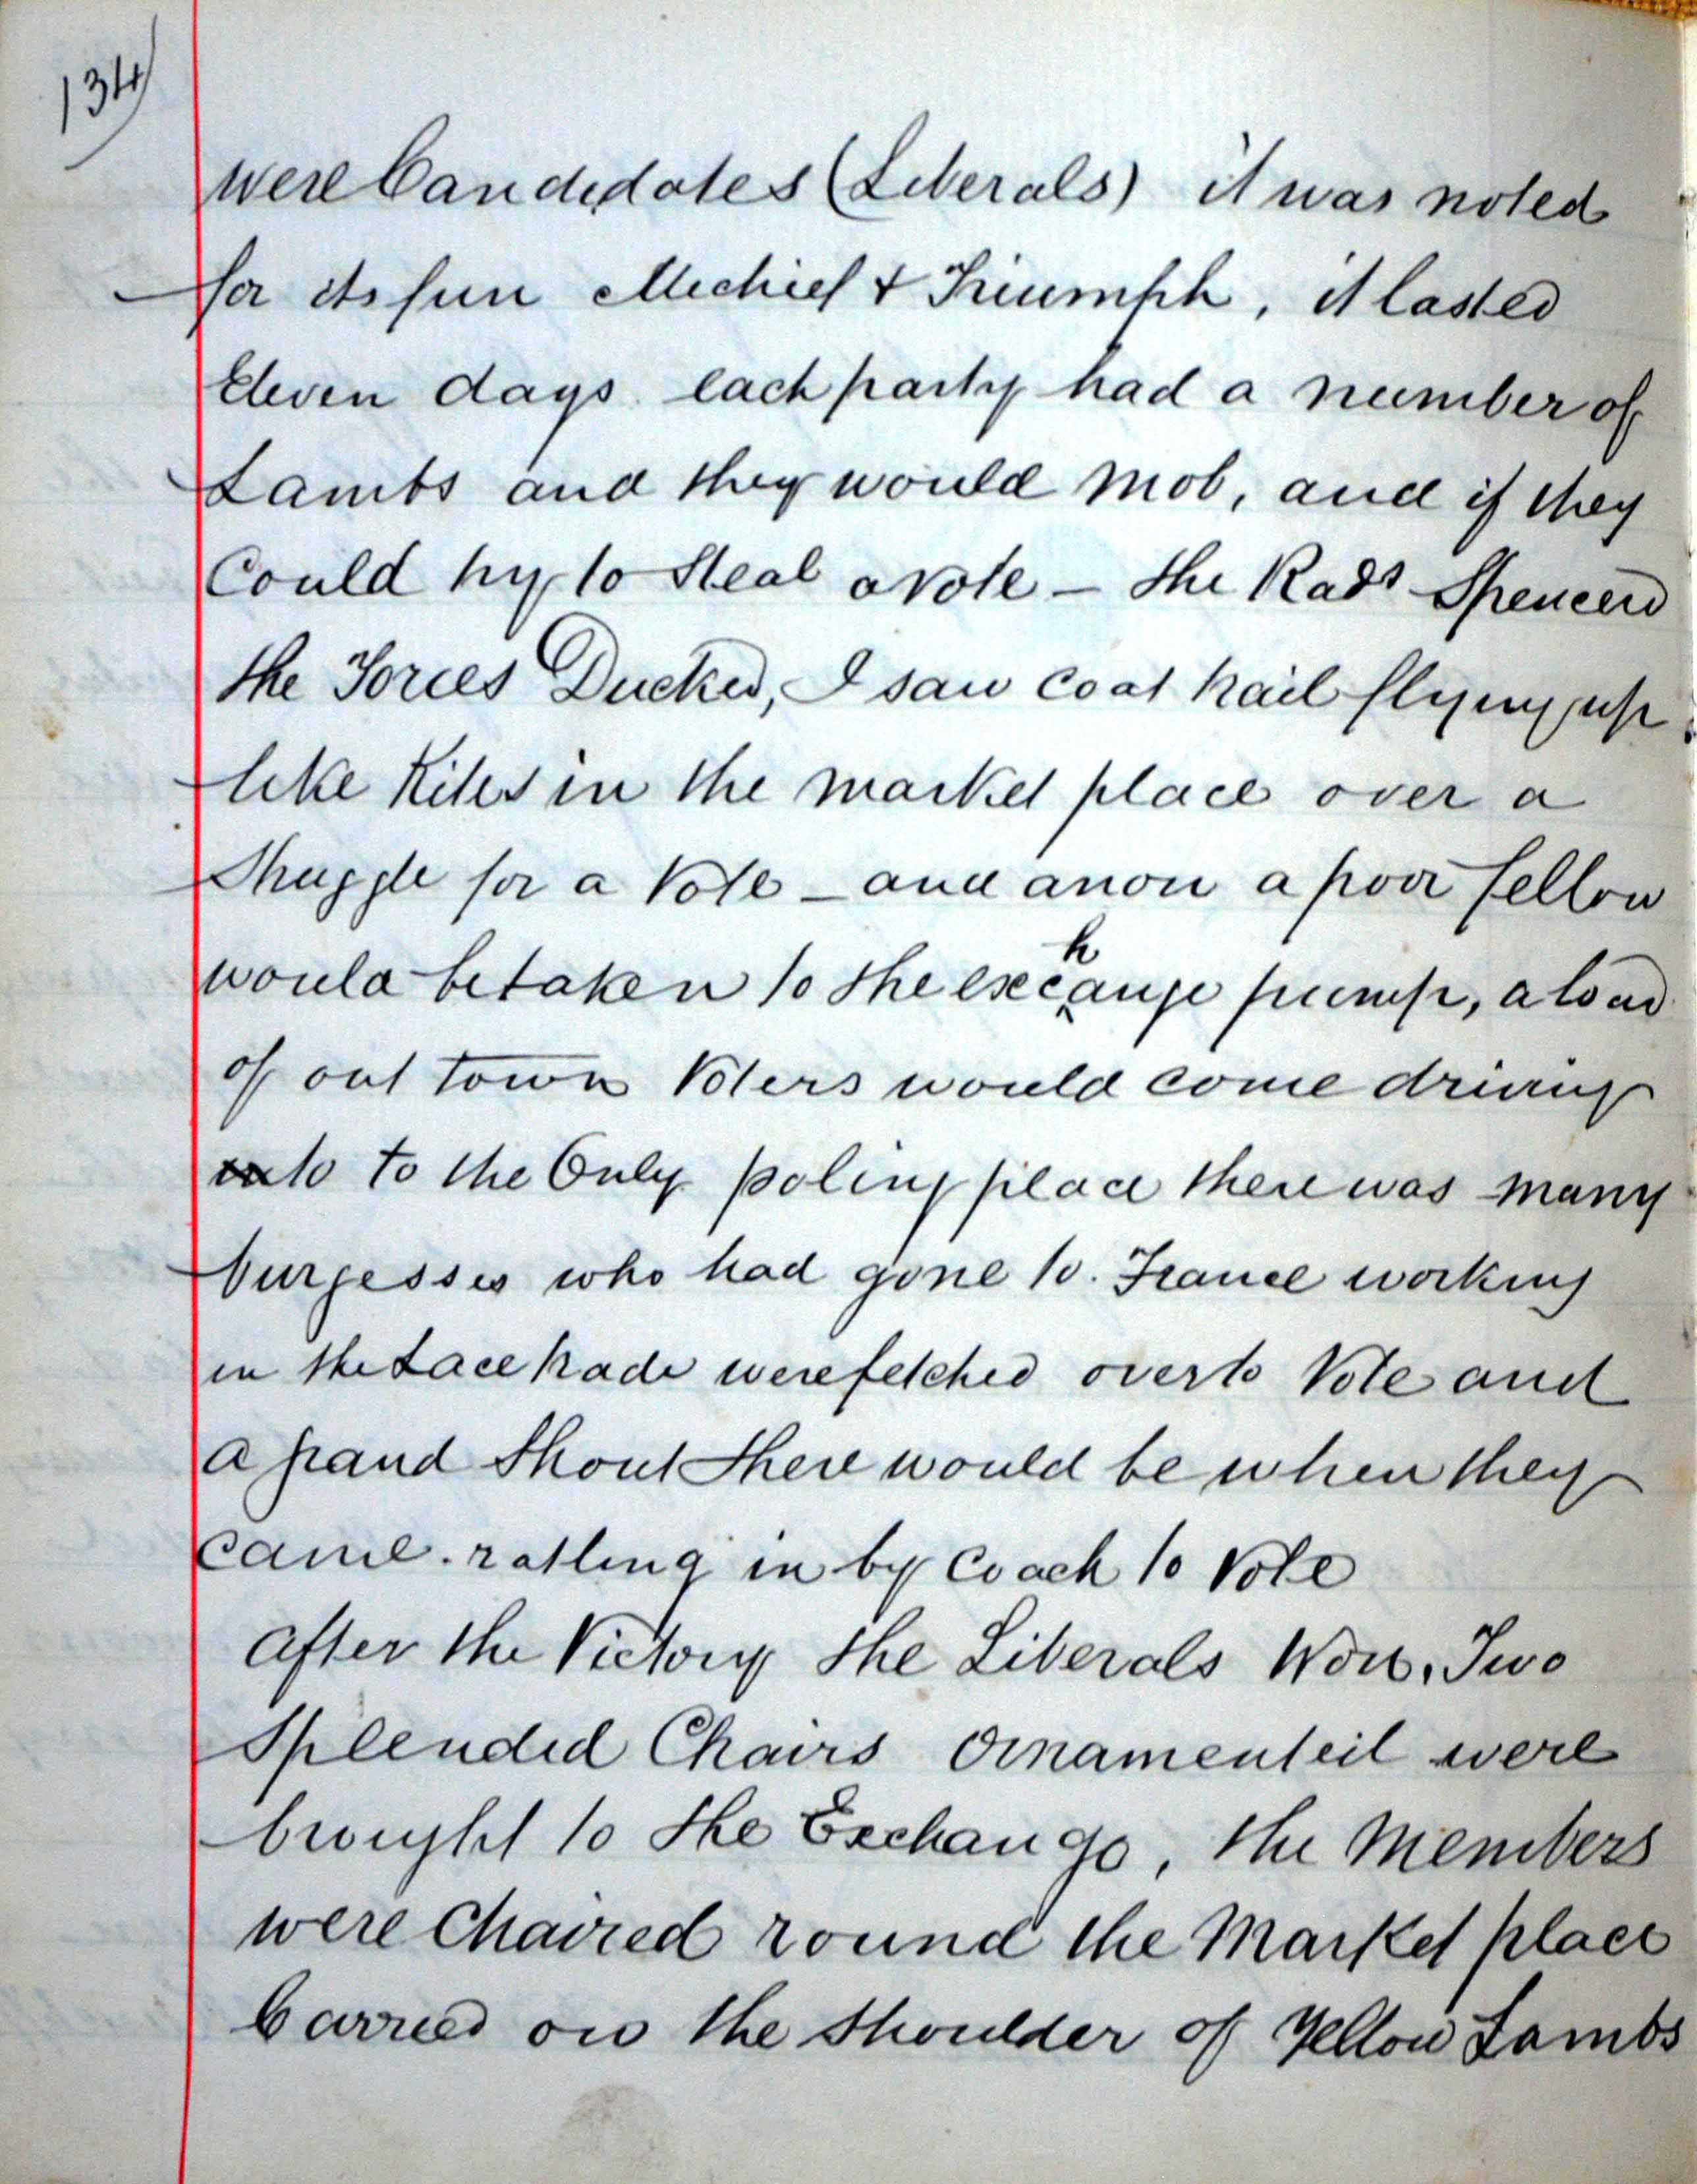 134
were Candidates (Liberals) it was noted
for its fun Mechief & Triumph, it lasted
Eleven days. each party had a number of
Lambs and they would mob, and if they
Could try to Steal a vote – the Rads Spencerd
the Tories Ducked, I saw coat tail flying up
like Kites in the market place over a
Struggle for a Vote – and anon a poor fellow
would be taken to the exechange pump, a load
of out town Voters would come driving
to to the Only poling place there was many
burgesses who had gone to. France working
in the Lace trade were fetched over to Vote and
a grand Shout there would be when they
came. ratling in by Coach to Vote
after the Victory the Liberals Won. Two
Splended Chairs Ornamenteil were
brought to the Exchange, the Members
were Chaired round the Market place
Carried on the shoulder of Yellow Lambs